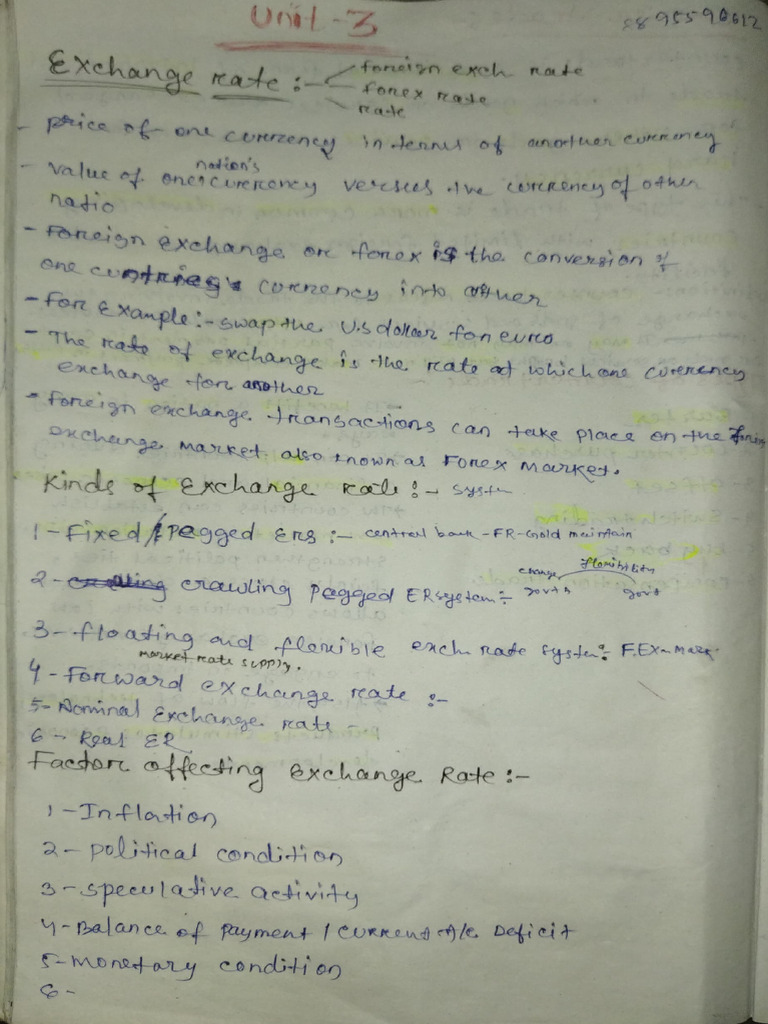 Unit-3
8895590612
Exchange rate :-
foreign exch rate
forex rate
rate
- price of one currency in terms of another currency
nation's
- value of one currency versus the currency of other
natio
- Foreign exchange or forex is the conversion of
one countries currency into other
- For Example:- swap the U.S dollar for euro
- The rate of exchange is the rate at which one currency
exchange for another
- Foreign exchange transactions can take place on the
exchange market also known as Forex Market.
Kinds of Exchange Rate :- system
1- Fixed / Pegged ERS :- central bank - FR - Gold maintain
change flexibility
2- crawling Pegged ER system :-
govt govt
3- floating and flexible exch rate system :- F.Ex-Mark
market rate supply.
4- Forward exchange rate :-
5- Nominal Exchange rate -
6- Real ER
Factor affecting Exchange Rate :-
1- Inflation
2- political condition
3- speculative activity
4- Balance of payment / current A/c Deficit
5- Monetary condition
6-